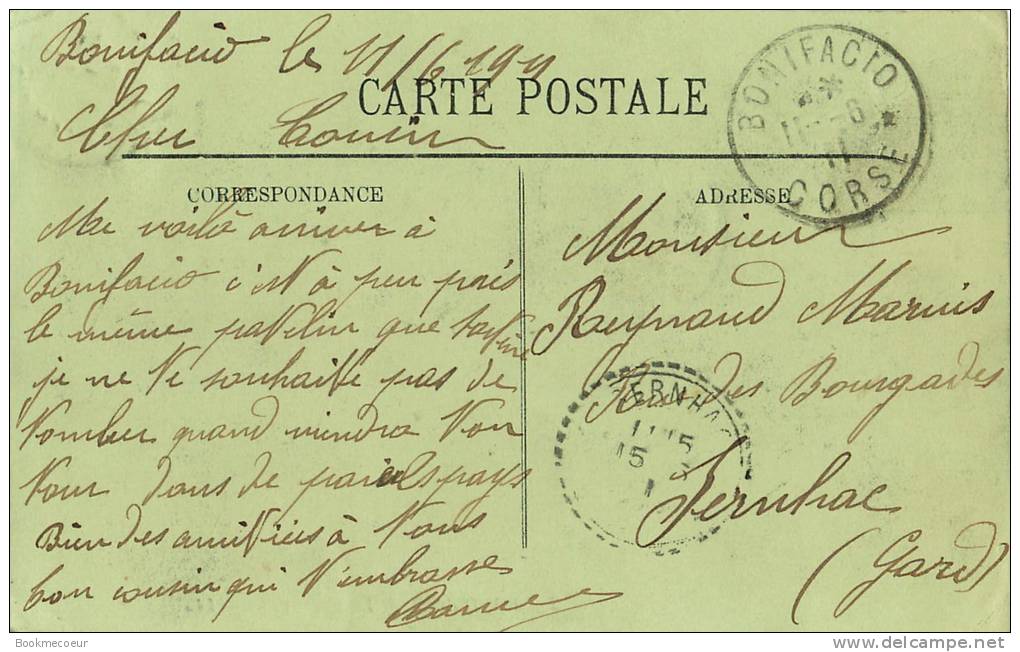 Bonifacio le 11/6 1911
CARTE POSTALE
Cher Cousin
BONIFACIO
11 - 6
11
CORSE
CORRESPONDANCE
ADRESSE
Me voilà arriver à
Bonifacio c'est à peu près
le même patelin que
je ne te souhaite pas de
tomber quand viendra ton
tour dans de pareils pays
Bien des amitiés à tous
ton cousin qui t'embrasse
Monsieur
Reynaud Marius
Rue des Bourgades
Sernhac
(Gard)
SERNHAC
15
Bookmecoeur
delcampe.net